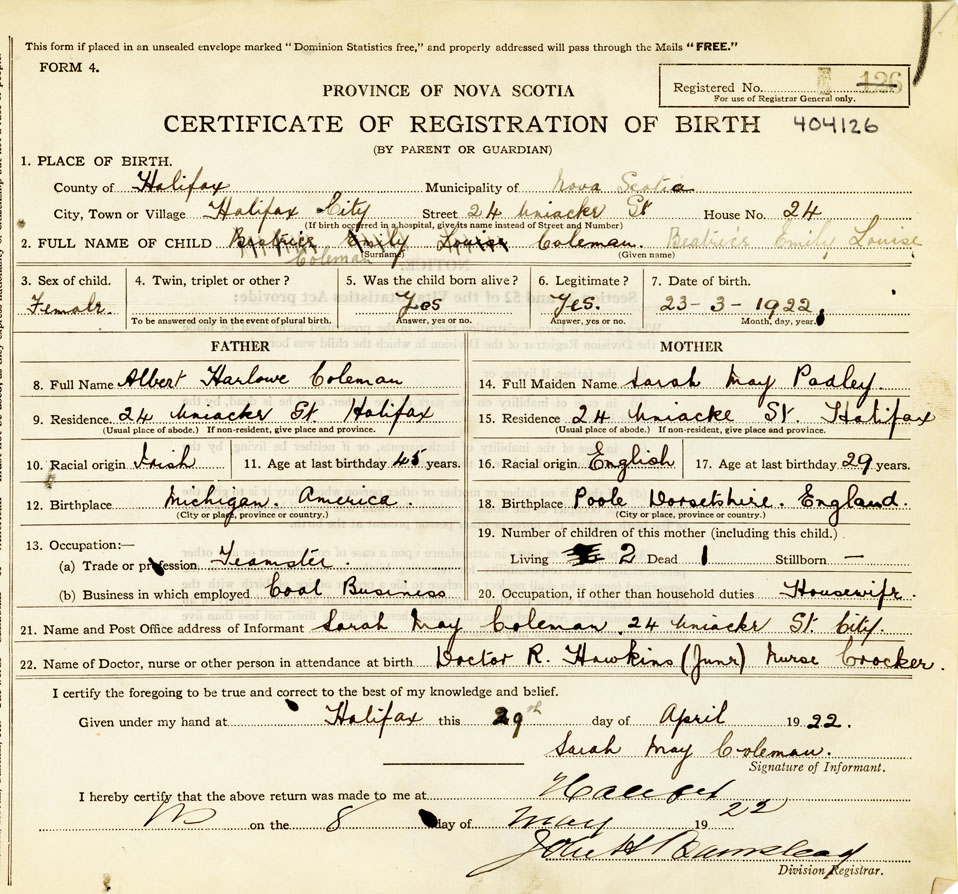 This form if placed in an unsealed envelope marked "Dominion Statistics free," and properly addressed will pass through the Mails "FREE."
FORM 4.
Registered No. 126
For use of Registrar General only.
PROVINCE OF NOVA SCOTIA
CERTIFICATE OF REGISTRATION OF BIRTH 404126
(BY PARENT OR GUARDIAN)
1. PLACE OF BIRTH.
County of Halifax Municipality of Nova Scotia
City, Town or Village Halifax City Street 24 Uniacke St House No. 24
(If birth occurred in a hospital, give its name instead of Street and Number)
2. FULL NAME OF CHILD Beatrice Emily Louise Coleman. Beatrice Emily Louise
Coleman (Surname) (Given name)
3. Sex of child. 4. Twin, triplet or other? 5. Was the child born alive? 6. Legitimate? 7. Date of birth.
Female. Yes Yes. 23-3-1922.
To be answered only in the event of plural birth. Answer, yes or no. Answer, yes or no. Month, day, year.
FATHER MOTHER
8. Full Name Albert Harlowe Coleman 14. Full Maiden Name Sarah May Padley.
9. Residence 24 Uniacke St Halifax 15. Residence 24 Uniacke St. Halifax
(Usual place of abode.) If non-resident, give place and province. (Usual place of abode.) If non-resident, give place and province.
10. Racial origin Irish 11. Age at last birthday 45 years. 16. Racial origin English 17. Age at last birthday 29 years.
12. Birthplace Michigan. America. 18. Birthplace Poole Dorsetshire. England.
(City or place, province or country.) (City or place, province or country.)
13. Occupation:— 19. Number of children of this mother (including this child.)
(a) Trade or profession Teamster. Living 2 Dead 1 Stillborn —
(b) Business in which employed Coal Business 20. Occupation, if other than household duties Housewife.
21. Name and Post Office address of Informant Sarah May Coleman. 24 Uniacke St. City.
22. Name of Doctor, nurse or other person in attendance at birth Doctor R. Hawkins (Junr) Nurse Crocker.
I certify the foregoing to be true and correct to the best of my knowledge and belief.
Given under my hand at Halifax this 29th day of April 1922.
Sarah May Coleman.
Signature of Informant.
I hereby certify that the above return was made to me at Halifax
on the 8 day of May 1922
John H Barnstead
Division Registrar.